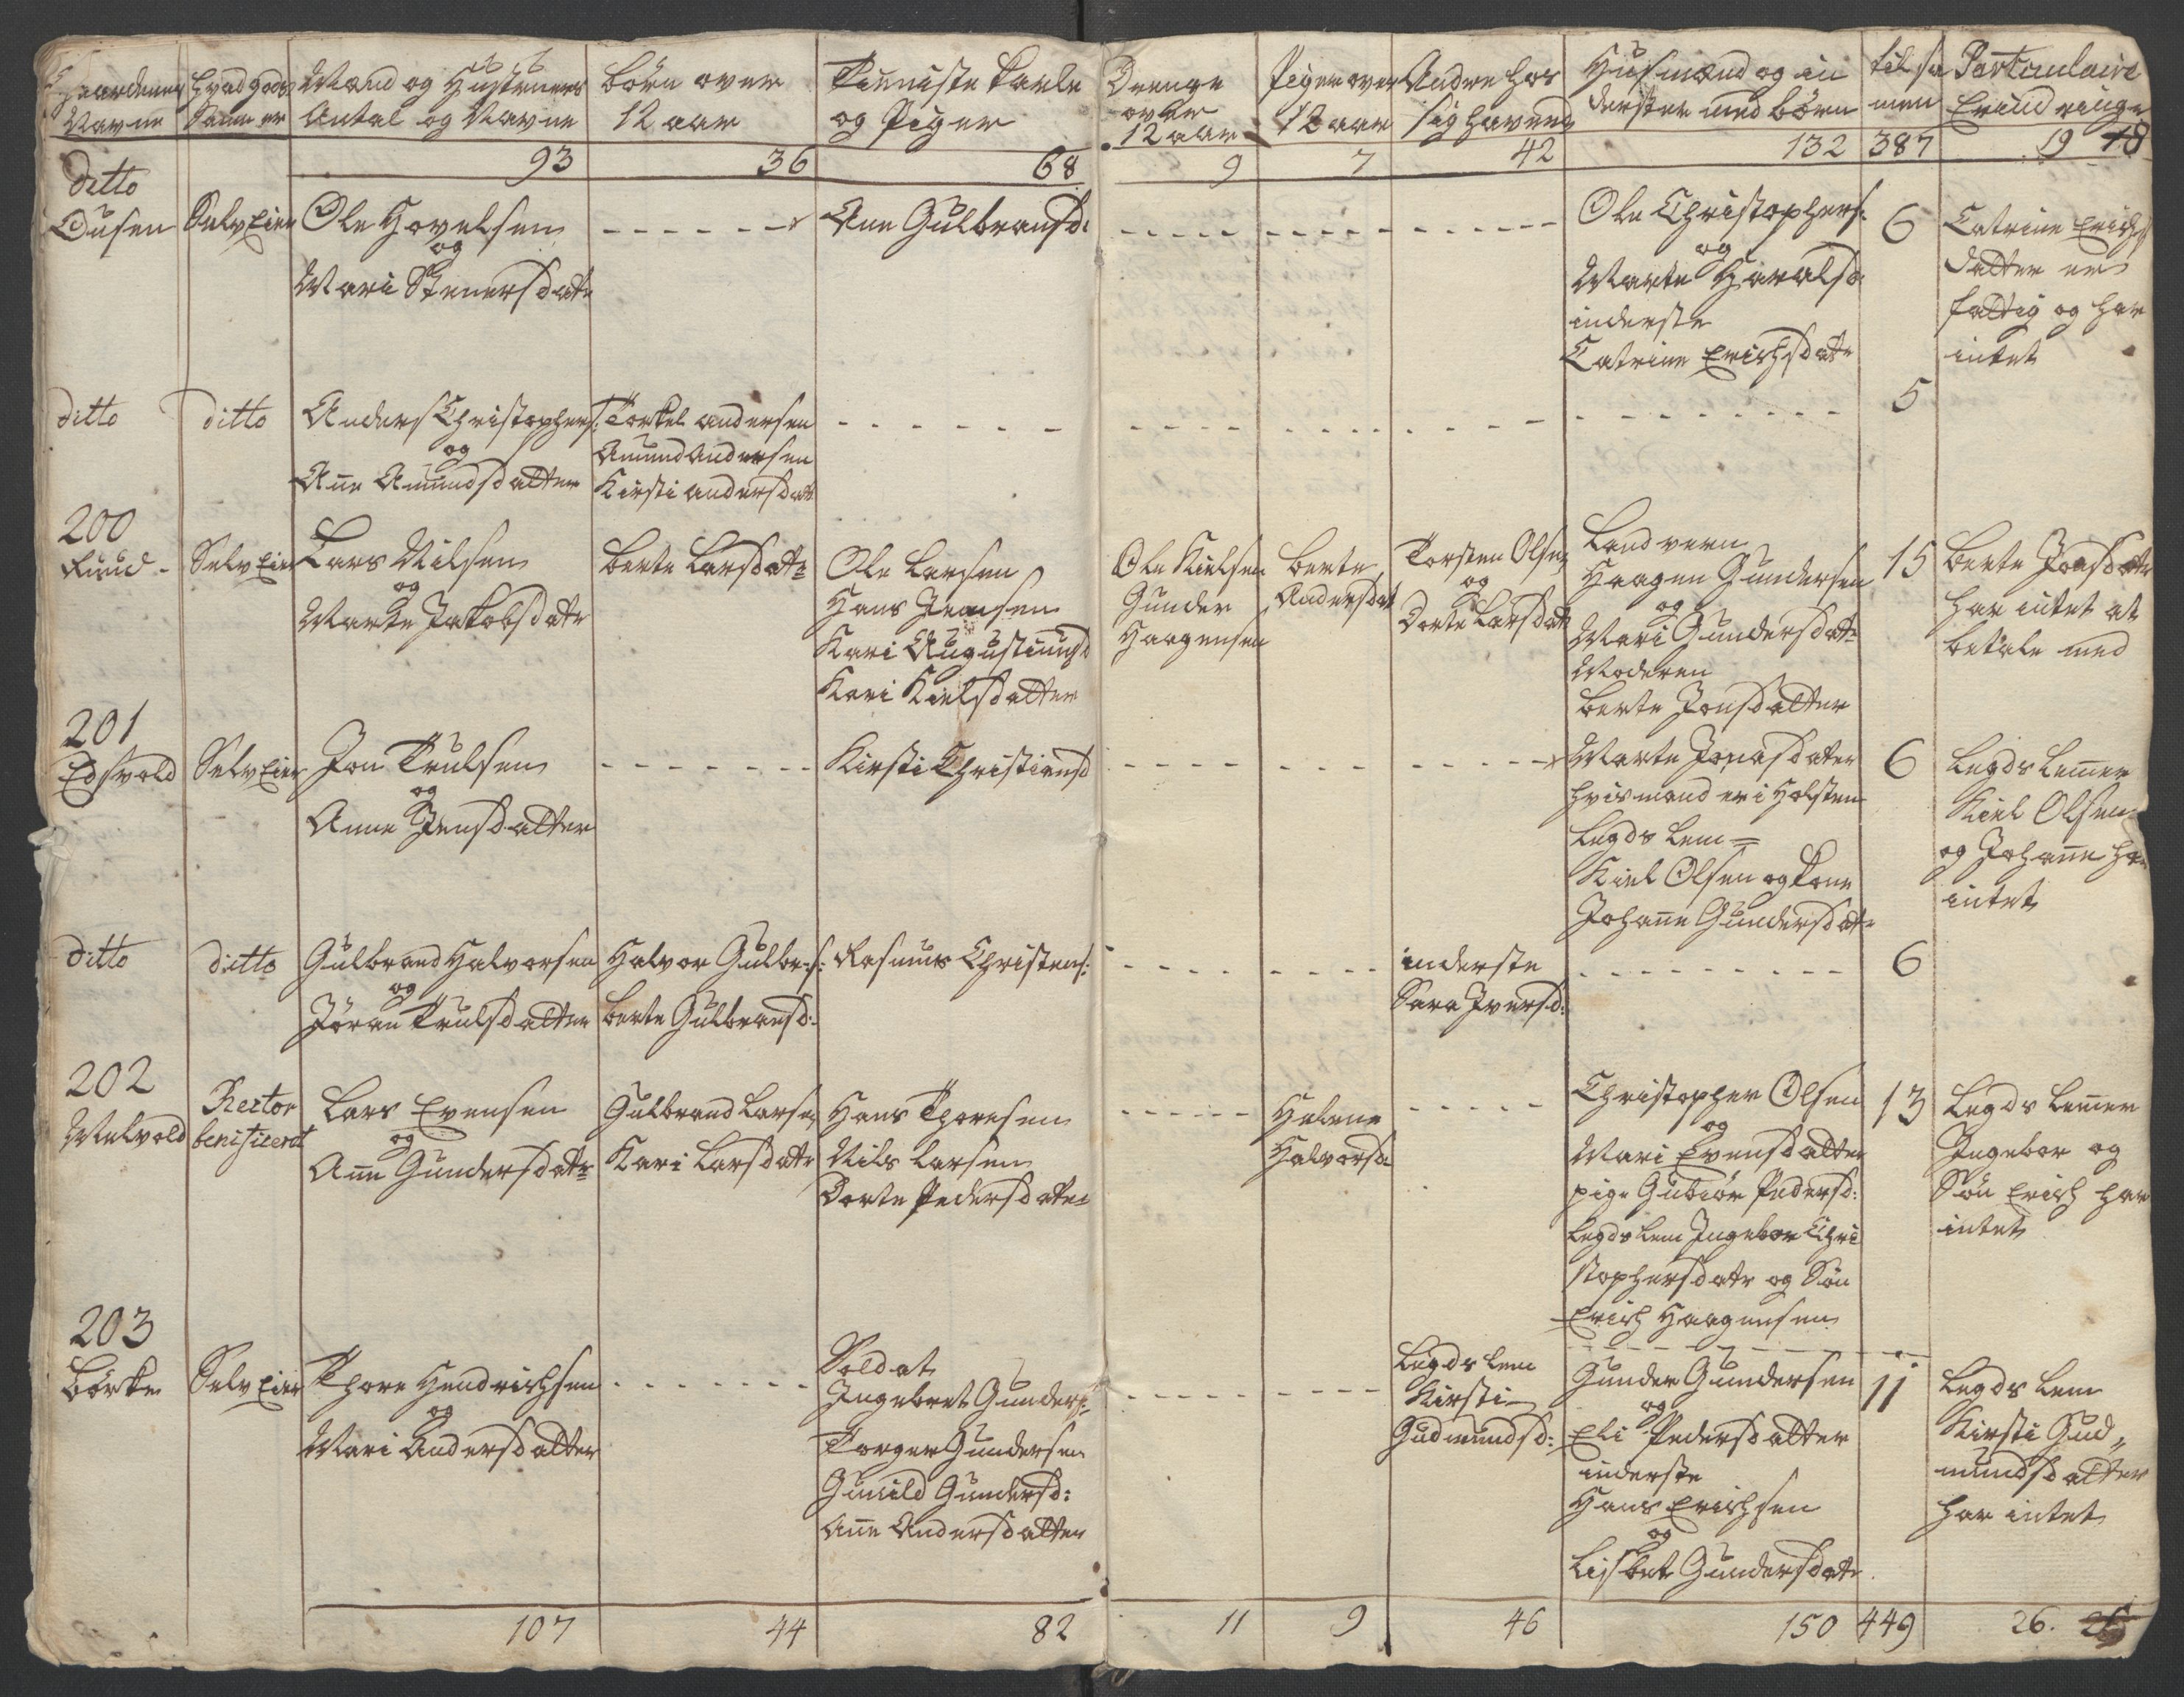 Gaardenes Navne
hvad gods Samme er
Mænd og Hustruers Antal og Navne
Børn over 12 aar
Tieniste karle og Piger
Drenge over 12 aar
Piger over 12 aar
Andre hos sig havende
Husmænd og inderster med børn
tilsamen
Particulaire Erindringer
93 36 68 9 7 42 132 387 19
ditto
Dusen
Selv Eier
Ole Hovelsen
og
Mari Stenersdatr
Ane Gulbransd:
Ole Christophers:
og
Marte Haralsd
inderste
Catrine Erichsdatr
6
Catrine Erichs
datter er
fattig og har
intet
ditto
ditto
Anders Christophers:
og
Ane Amundsdatter
Torkel andersen
Amund andersen
Kirsti andersdatr
5
200
Ruud
Selv Eier
Lars Nilsen
og
Marte Jakobsdatr
Berte Larsdatr
Ole Larsen
Hans Jensen
Kari Augustinusd
Kari Kielsdatter
Ole Kielsen
Gunder
Haagensen
Berte
Andersdat
Torsten Olsen
og
Dorte Larsdatr
Landvern
Haagen Gundersen
og
Mari Gundersdatr
Moderen
Berte Jonsdatter
15
Berte Jonsdatr
har intet at
betale med
201
Edsvold
Selv Eier
Jon Trulsen
og
Anne Jensdatter
Kirsti Christiansd
Marte Jonasdater
hvis mand er i Holsten
Legds lem
Kiel Olsen og kone
Johane Gundersdatr
6
Legds lemer
Kiel Olsen
og Johane har
intet
ditto
ditto
Gulbrand Halvorsen
og
Jøran Trulsdatter
Halvor Gulbr:s:
Berte Gulbransd:
Rasmus Christens:
inderste
Sara Iversd:
6
202
Melvold
Rector
benificerit
Lars Evensen
og
Ane Gundersdatr
Gulbrand Larsen
Kari Larsdatr
Hans Thoresen
Nils Larsen
Dorte Pedersdatr
Helene
Halvorsd
Christopher Olsen
og
Mari Evensdatter
pige Gubiør Pedersd:
Legdslem Ingebor Chri
stophersdatr og Søn
Erich Haagensen
13
Legds lemer
Ingebor og
Søn Erich har
intet
203
Børke
Selv Eier
Thore Hendrichsen
og
Mari Andersdatter
Soldat
Ingebret Gunders:
Torger Gundersen
Gunild Gundersd:
Ane Andersdatter
Legds lem
Kirsti
Gudmundsd:
Gunder Gundersen
og
Eli Pedersdatter
inderste
Hans Erichsen
og
Lisbet Gundersdatr
11
Legds lem
Kirsti Gud„
mundsdatter
har intet
107 44 82 11 9 46 150 449 26.